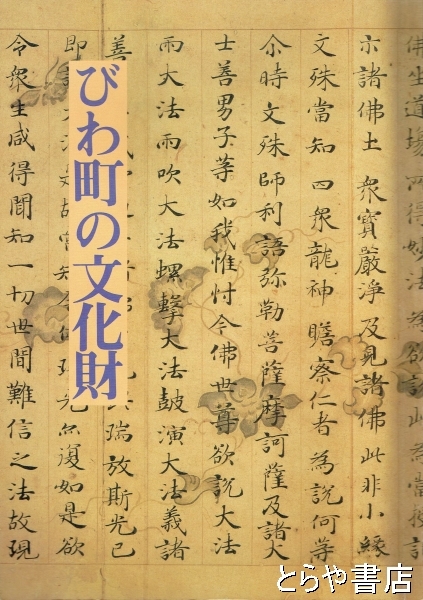 びわ町の文化財
佛坐道場所得妙法為欲說此為當授記
示諸佛土衆寶嚴淨及見諸佛此非小緣
文殊當知四衆龍神瞻察仁者為說何等
尒時文殊師利語弥勒菩薩摩訶薩及諸大
士善男子等如我惟忖今佛世尊欲說大法
雨大法雨吹大法螺擊大法鼓演大法義諸
善
瑞放斯光已
即
光亦復如是欲
令衆生咸得聞知一切世間難信之法故現
とらや書店